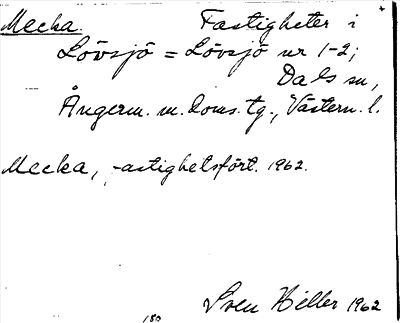 Mecka. Fastigheter i
Lövsjö = Lövsjö nr 1-2;
Dals sn,
Ångerm. m. doms. tg., Västern. l.
Mecka, -astighetsfört. 1962.
Sven Hiller 1962
180